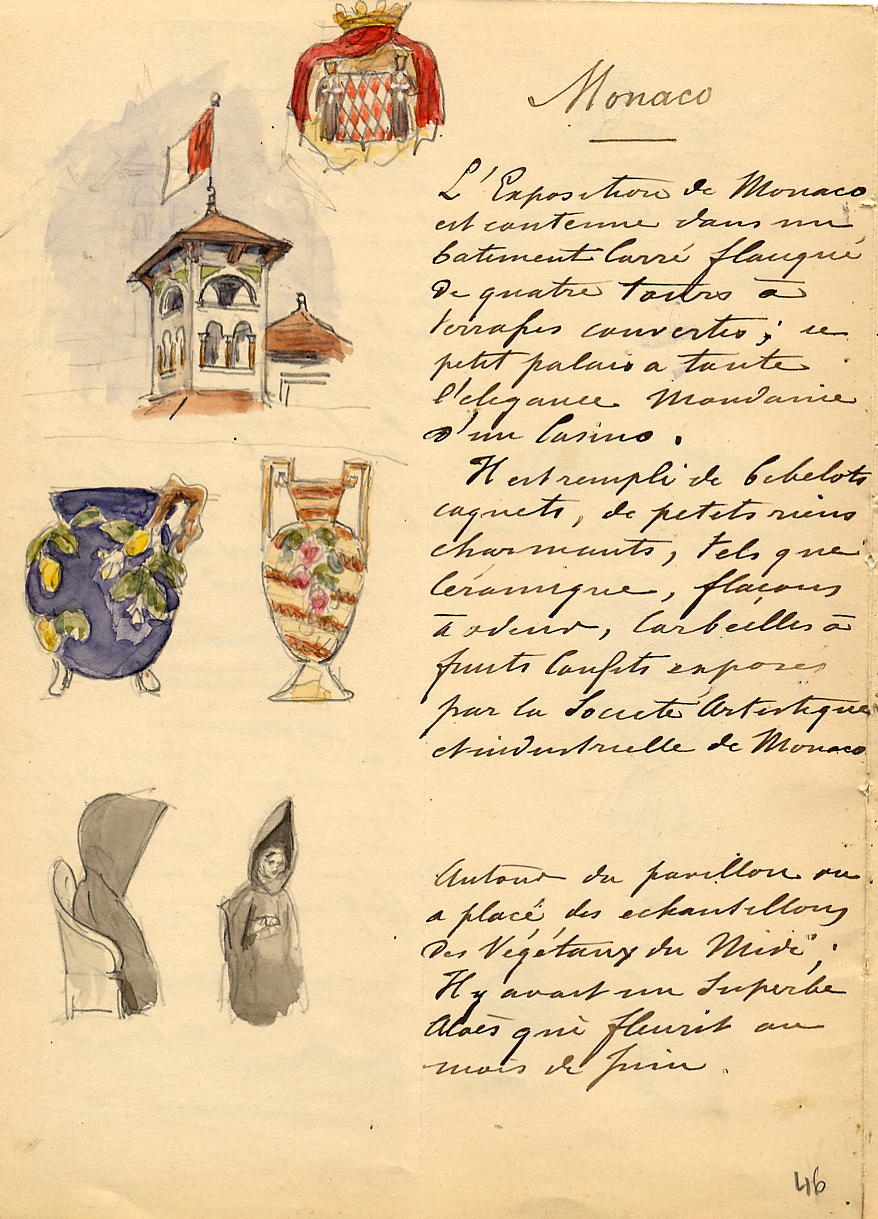 Monaco
L'Exposition de Monaco
est contenue dans un
batiment Carré flanqué
de quatre tours à
terrasses couvertes; ce
petit palais a toute
l'elegance Mondaine
d'un Casino.
Il est rempli de bibelots
coquets, de petits riens
charmants, tels que
Céramique, flaçons
à odeur, Corbeilles à
fruits Confits exposés
par la Société Artistique
et industrielle de Monaco
Autour du pavillon on
a placé des echantillons
des Végétaux du Midi;
Il y avait un Superbe
Aloès qui fleurit au
mois de Juin.
46